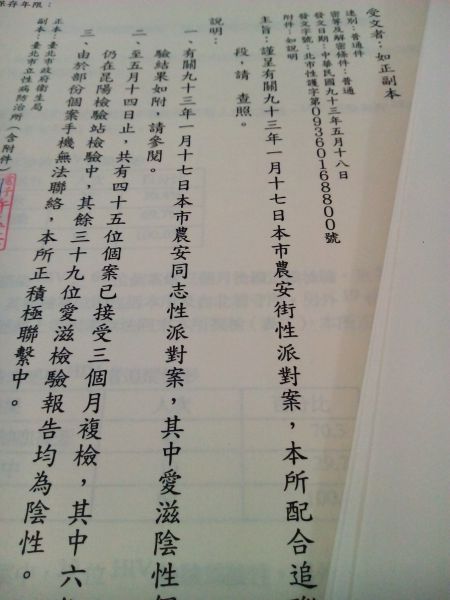 保存年限：
受文者：如正副本
速別：普通件
密等及解密條件：普通
發文日期：中華民國九十三年五月十八日
發文字號：北市性護字第09360168800號
附件：如說明
主旨：謹呈有關九十三年一月十七日本市農安街性派對案，本所配合追
段，請 查照。
說明：
一、有關九十三年一月十七日本市農安同志性派對案，其中愛滋陰性
驗結果如附，請參閱。
二、至五月十四日止，共有四十五位個案已接受三個月複檢，其中六
仍在昆陽檢驗站檢驗中，其餘三十九位愛滋檢驗報告均為陰性。
三、由於部份個案手機無法聯絡，本所正積極聯繫中。
正本：臺北市政府衛生局
副本：臺北市立性病防治所（含附件）